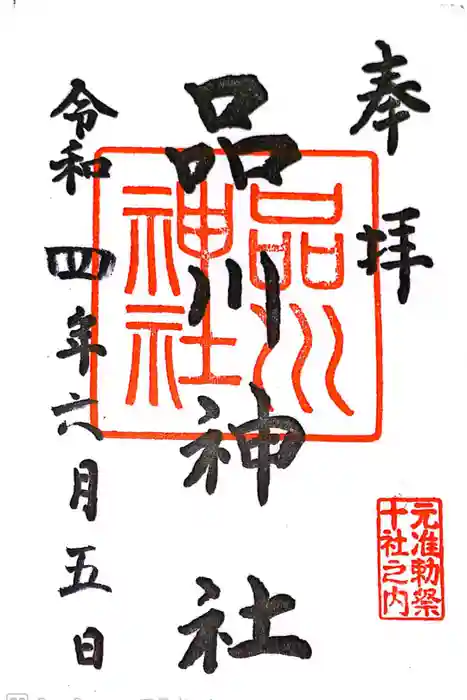 奉拝
品川神社
品川
神社
令和四年六月五日
元准勅祭
十社之内